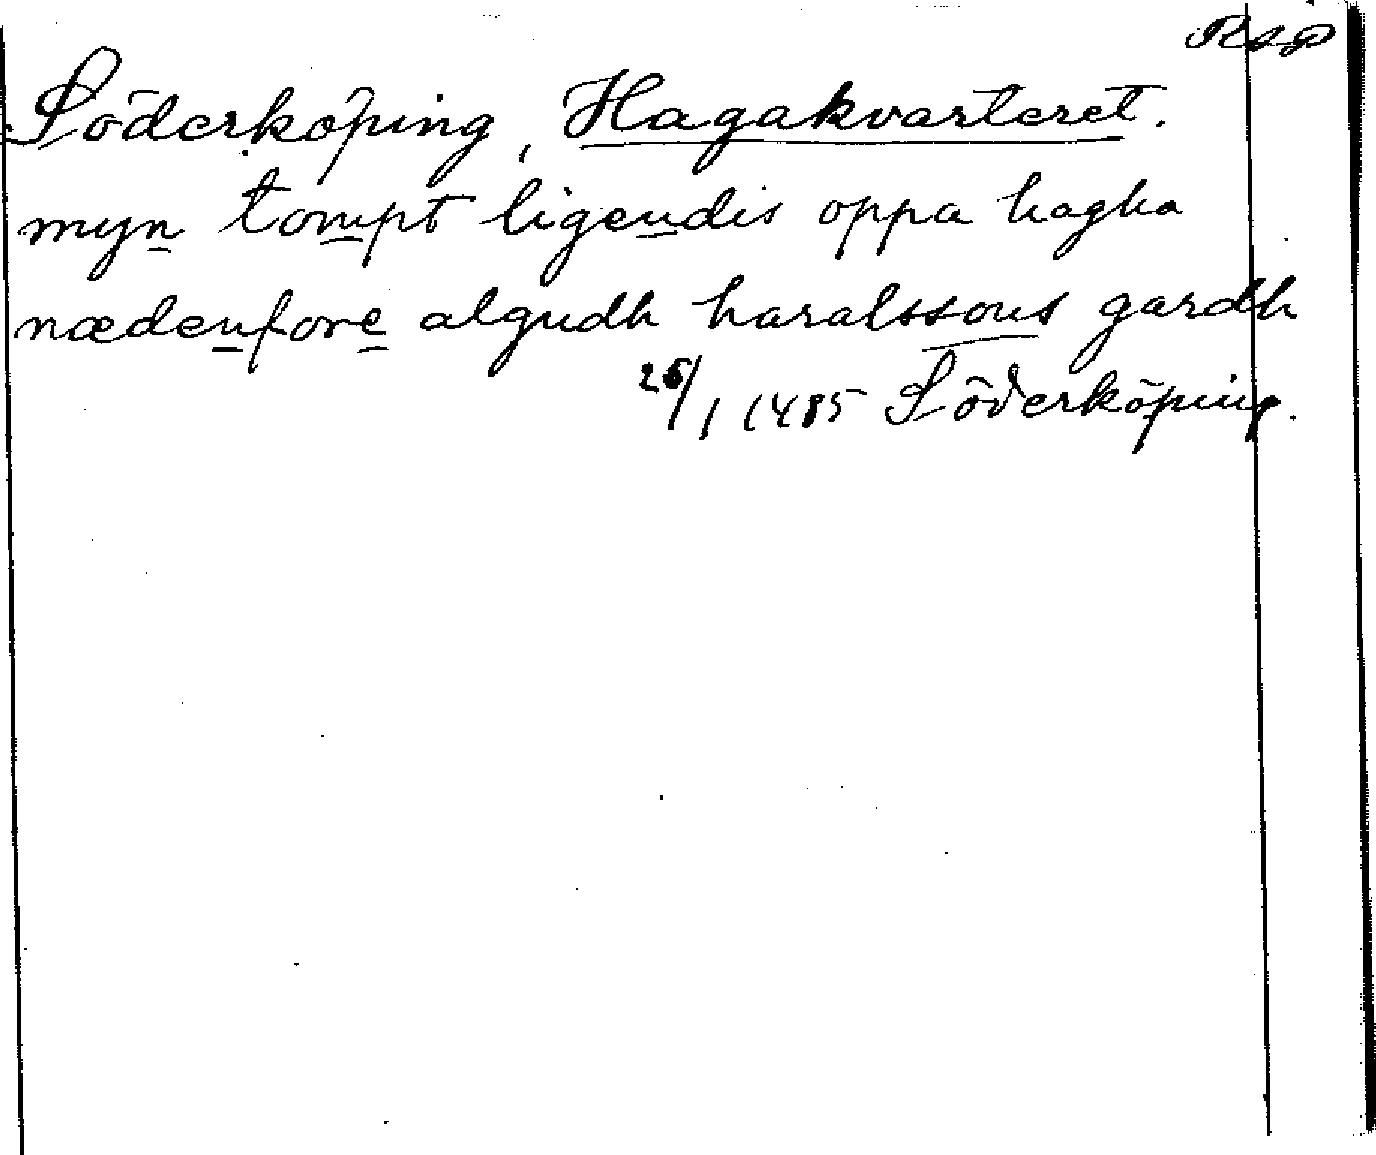 RAP
Söderköping, Hagakvarteret.
myn tompt ligendis oppa hagha
nædenfore algudh haralssons gardh
26/1 1485 Söderköping.